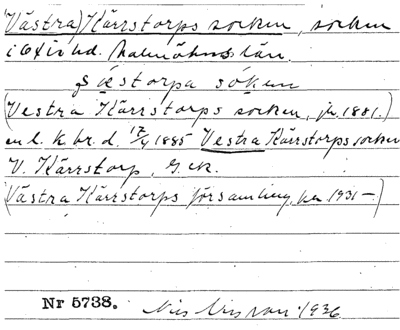 (Västra) Kärrstorps socken, socken
i Oxie hd. Malmöhus län.
(Vestra Kärrstorps socken, jb. 1881.)
enl. k. br. d. 17/4 1885 Vestra Kärrstorps socken
V. Kärrstorp, G. ck.
(Västra Kärrstorps församling, ka 1931–)
Nr 5738. 1936